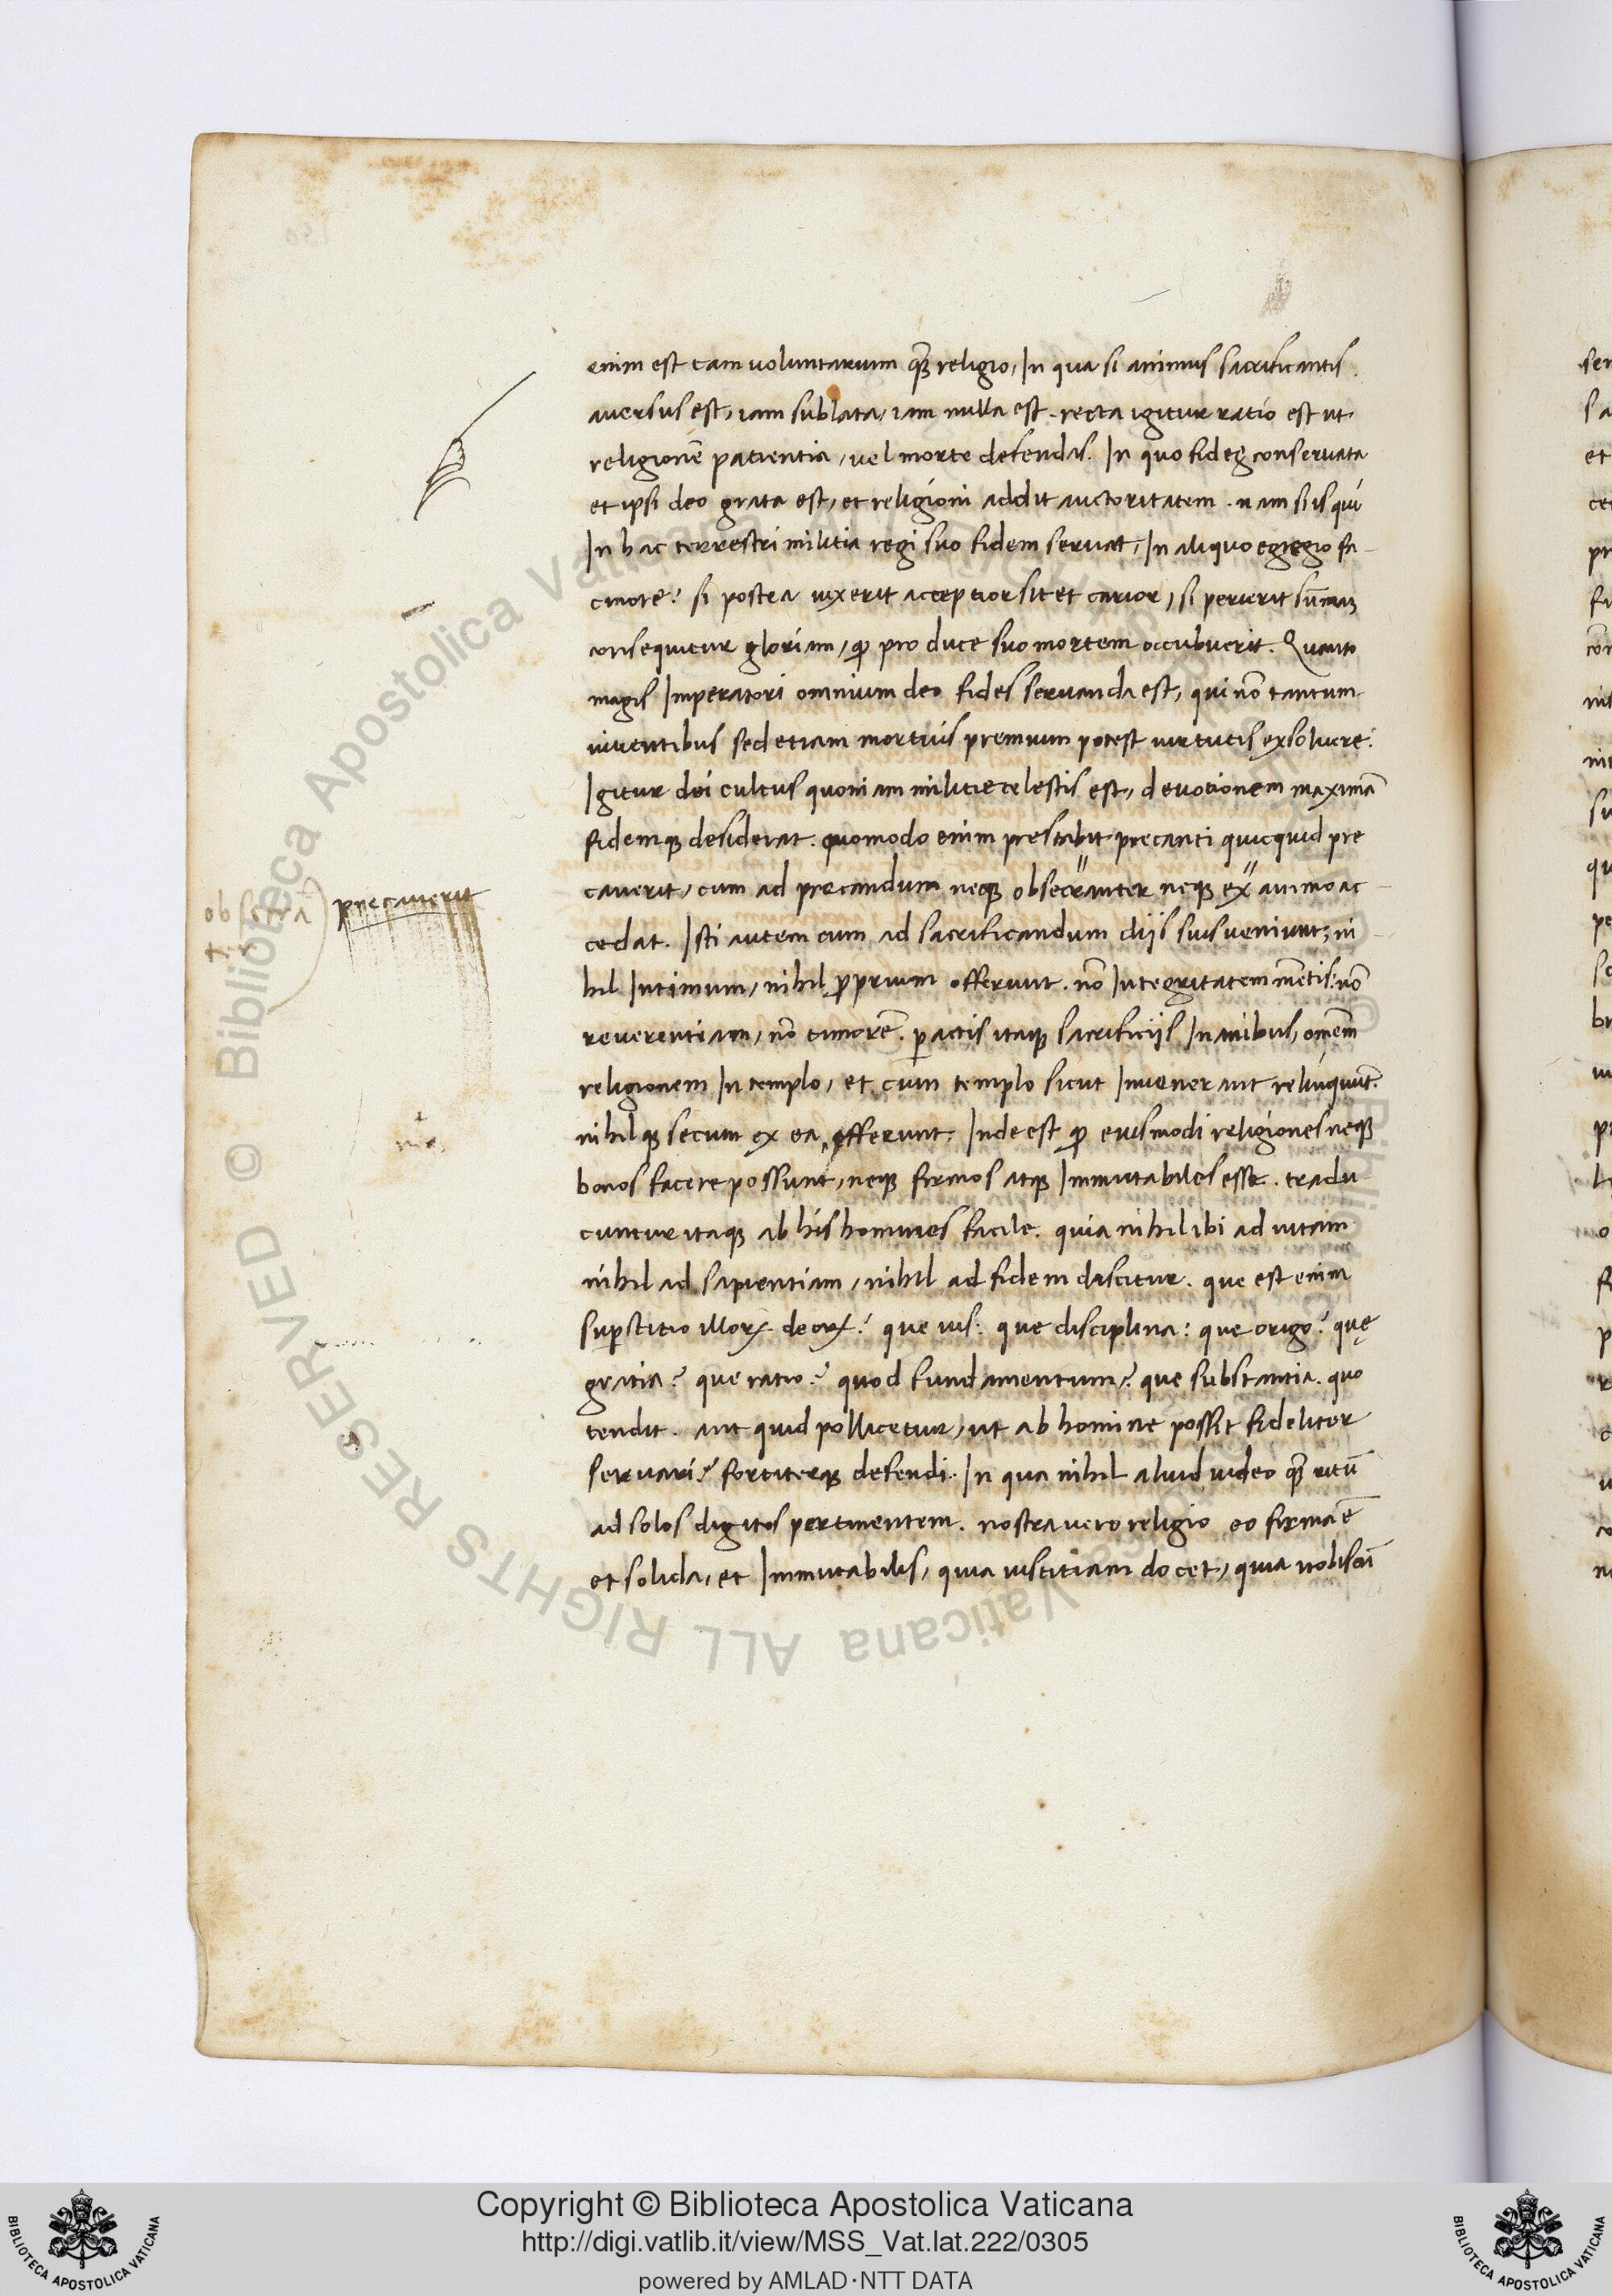 enim est tam voluntarium qȝ religio, In qua si animus sacrificantis
aversus est, iam sublata, iam nulla est. recta igitur ratio est ut
religionē patientia, vel morte defendas. In quo fides conservata
et ipsi deo grata est, et religioni addit auctoritatem. nam si is qui
In hac terrestri militia regi suo fidem servat, In aliquo egregio fa-
cinore? si postea vixerit acceptior sit et carior, si perierit sūmaȝ
consequitur gloriam, ꝙ pro duce suo mortem occubuerit. Quanto
magis Imperatori omnium deo fides servanda est, qui nō tantum
viventibus sed etiam mortuis premium potest virtutis exsolvere?
Igitur dei cultus quoniam militie celestis est, devotionem maximā
fidemqȝ desiderat. quomodo enim prestabit precanti quicquid pre
caverit, cum ad precandum neqȝ obsecranter neqȝ ex" animo ac-
cedat. Isti autem cum ad sacrificandum diis suis veniunt, ni-
hil Intimum, nihil ꝓprium offerunt. nō Integritatem mētis: nō
reverentiam, nō timorē. ꝑactis itaqȝ sacrificiis Inanibus, omēm
religionem In templo, et cum templo sicut Invenerant relinquūt.
nihilqȝ secum ex ea offerunt. Inde est ꝙ eiusmodi religiones neqȝ
bonos facere possunt, neqȝ firmos atqȝ Immutabiles esse. tradu
cuntur itaqȝ ab his homines facile. quia nihil ibi ad vitam
nihil ad sapientiam, nihil ad fidem discitur. que est enim
suꝑstitio illoꝝ deoꝝ? que vis? que disciplina? que origo? quę
gratia? que ratio? quod fundamentum? que substantia. quo
tendit. aut quid pollicetur, ut ab homine possit fideliter
servari? fortiterqȝ defendi. In qua nihil aliud video qȝ ritū
ad solos digitos pertinentem. nostra vero religio eo firma ē
et solida, et Immutabilis, quia iustitiam docet, quia nobiscū
obsecra
precaverit
Copyright © Biblioteca Apostolica Vaticana
http://digi.vatlib.it/view/MSS_Vat.lat.222/0305
powered by AMLAD·NTT DATA
BIBLIOTECA APOSTOLICA VATICANA
BIBLIOTECA APOSTOLICA VATICANA
© Biblioteca Apostolica Vaticana ALL RIGHTS RESERVED